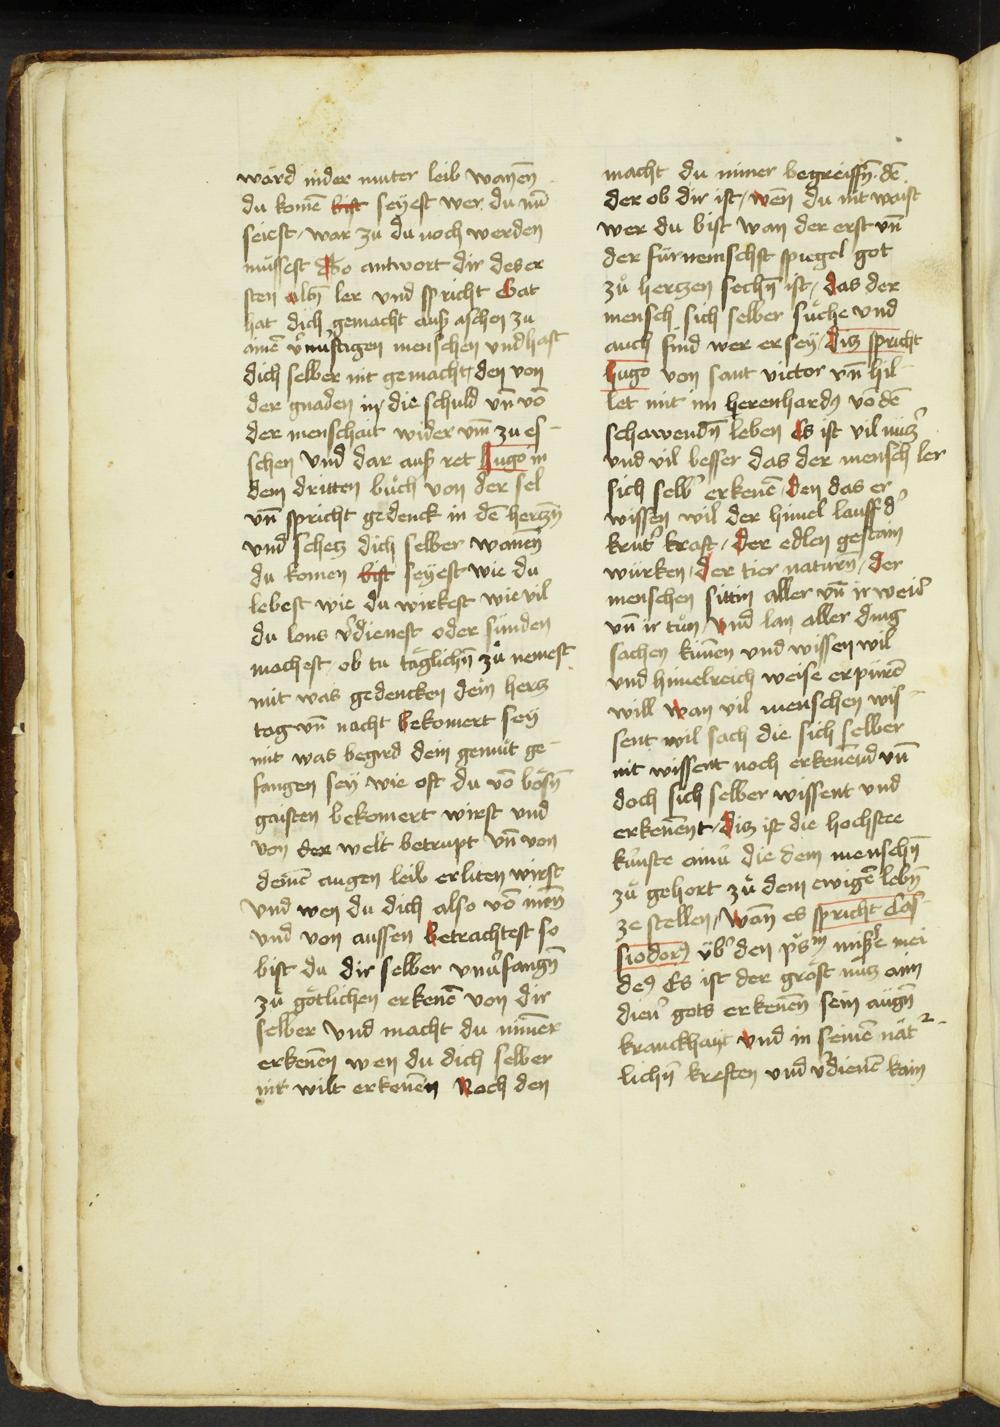 ward in der muter leib wañen
du komē bist seyest wer du nū
seiest / war zu du noch werden
müssest So antwort dir des er
sten ler vnd spricht Gat
hat dich gemacht auß aschen zu
ainē v̄nuͤftigen menschen vnd hast
dich selber nit gemacht / den von
der gnaden in / die schuld vn̄ vō
der menschait wider vm̄ zu es-
schen Vnd dar auß ret hugo in
dem dritten buͦch von der sel
vn̄ spricht gedenck in dē hertzn̄
vnd schetz dich selber wanen̄
du komen bist seyest wie du
lebest wie du wirkest wie vil
du lons v̓dienest oder sünden
machest ob tu täglichn̄ zuͦ nemest
mit was gedencken dein hertz
tag vn̄ nacht bekomert sey
mit was begird dein gemüt ge-
fangen sey wie oft du vō bösn̄
gaisten bekomert wirst vnd
von der welt betrupt vn̄ von
deinē augen leib erliten wirst
Vnd wen du dich also vō inen̄
vnd von aussen betrachtest so
bist du dir selber v̓fangn̄
zuͦ götlichen erkenē von dir
selber Vnd macht du nim̄er
erkenēn wen du dich selber
nit wilt erkenēn Noch den
macht du nimer begreiffn̄ dē
der ob dir ist / wen̄ du nit waist
wer du bist wan der erst vn̄
der fürnemschst spiegel got
zuͦ hertzen sechn̄ ist / das der
mensch sich selber suͦche vnd
auch find wer er sey / Diz spricht
hugo von sant victor vn̄ hil-
let mit im herenhardꝰ vō dē
schawendn̄ leben Es ist vil nütz̓
vnd vil besser das der mensch ler
sich selb̓ erkenē / Den das er
wissen wil der himel lauff d̓
krut̓ kraft / Der edlen gestain
würken / der tier naturn̄ / der
menschen sittin aller vn̄ ir weis̓
vn̄ ir tuͦn vnd lan aller ding
sachen kün̄en vnd wissen wil
vnd himelreich weise erpürē
will wan vil menschen wis-
sent vil sach die sich selber
nit wissent noch erkenēnd vn̄
doch sich selber wissent vnd
erkenēnt / Diz ist die hochstee
künste ainu̓ die dem menschn̄
zuͦ gehort zuͦ dem ewigē lebn̄
ze stellen / Wan̄ es spricht Cas-
siodorꝰ üb̓ den pſm̄ mis̓e mei
deꝰ Es ist der gröst nutz ain
dien̓ gots erkenēn sein augn̄
kranckhayt vnd in seinē nät²-
lichn̄ kreften vnd v̓dienē kain